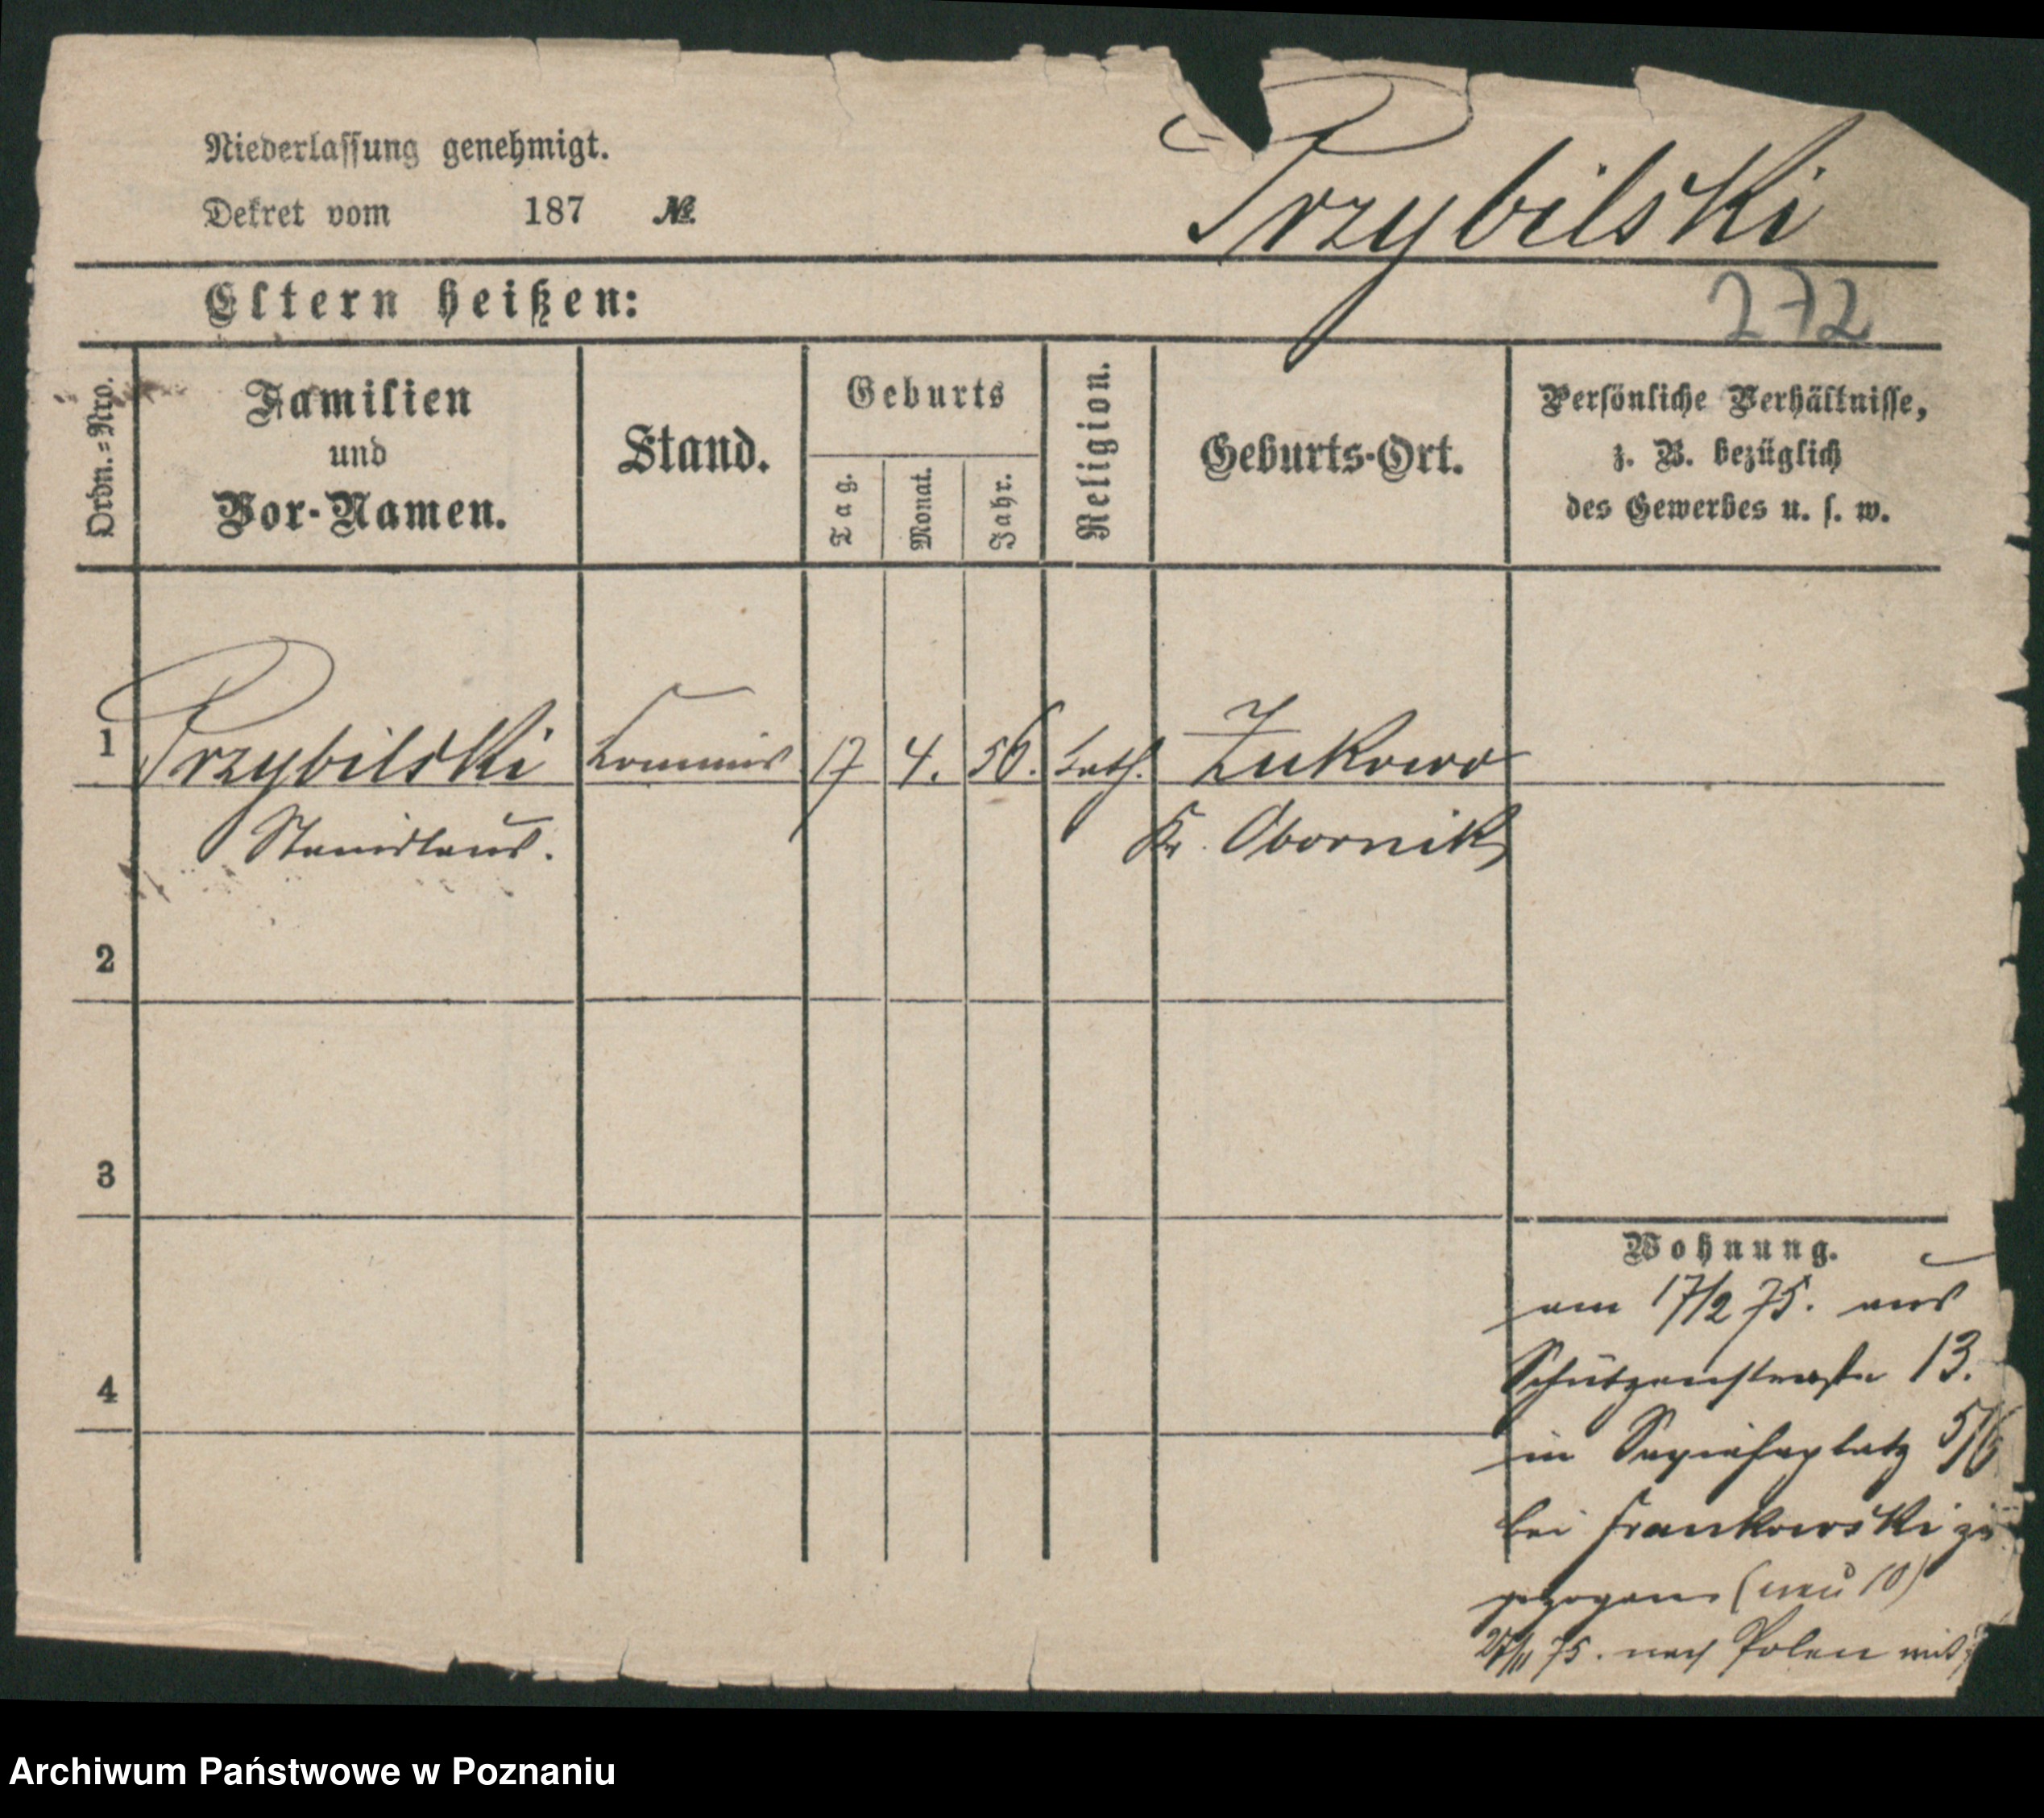 Niederlassung genehmigt.
Dekret vom 187 №
Przybilski
Eltern heißen:
272
Ordn.=Nro.
Familien
und
Vor-Namen.
Stand.
Geburts
Tag.
Monat.
Jahr.
Religion.
Geburts-Ort.
Persönliche Verhältnisse,
z. B. bezüglich
des Gewerbes u. s. w.
1 Przybilski Commis 17 4. 56. kath. Żukowo
Stanislaus. Kr. Obornik
2
3
4
Wohnung.
am 17/2 75. aus
Schützenstraße 13.
in Sapiehaplatz 5/6
bei Frankowski
gezogen (neu 10)
75. nach Polen
Archiwum Państwowe w Poznaniu